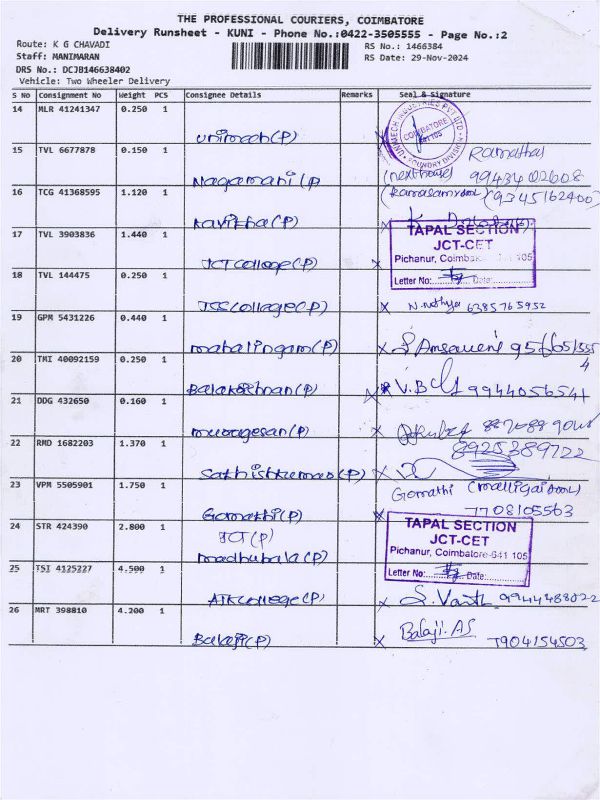 THE PROFESSIONAL COURIERS, COIMBATORE
Delivery Runsheet - KUNI - Phone No.:0422-3505555 - Page No.:2
Route: K G CHAVADI
RS No.: 1466384
Staff: MANIMARAN
RS Date: 29-Nov-2024
DRS No.: DCJB146638402
Vehicle: Two Wheeler Delivery
S No Consignment No Weight PCS Consignee Details Remarks Seal & Signature
14 MLR 41241347 0.250 1
unimech(P)
UNIMECH INDUSTRIES PVT LTD
COIMBATORE
FOUNDRY DIVISION
15 TVL 6677878 0.150 1
Nagamani (P
Ramathal
(next house) 9943402608
16 TCG 41368595 1.120 1
(9345162400)
Kavitha(P)
17 TVL 3903836 1.440 1
JCT college(P)
TAPAL SECTION
JCT-CET
Pichanur, Coimbatore 105
Letter No: Date:
18 TVL 144475 0.250 1
JCS college(P)
N. nithya 6385765952
19 GPM 5431226 0.440 1
mahalingam(P)
20 TMI 40092159 0.250 1
Balakrishnan(P)
9944056541
21 DDG 432650 0.160 1
murugesan(P)
22 RMD 1682203 1.370 1
8925389722
Sathishkumar(P)
23 VPM 5505901 1.750 1
Gomathi (malligai
Gomathi(P)
7708105563
24 STR 424390 2.800 1
JCT(P)
madhubala(P)
TAPAL SECTION
JCT-CET
Pichanur, Coimbatore-641 105
Letter No: Date:
25 TSI 4125227 4.500 1
AJK college(P)
9944488022
26 MRT 398810 4.200 1
Balaji(P)
Balaji. AS
7904154503